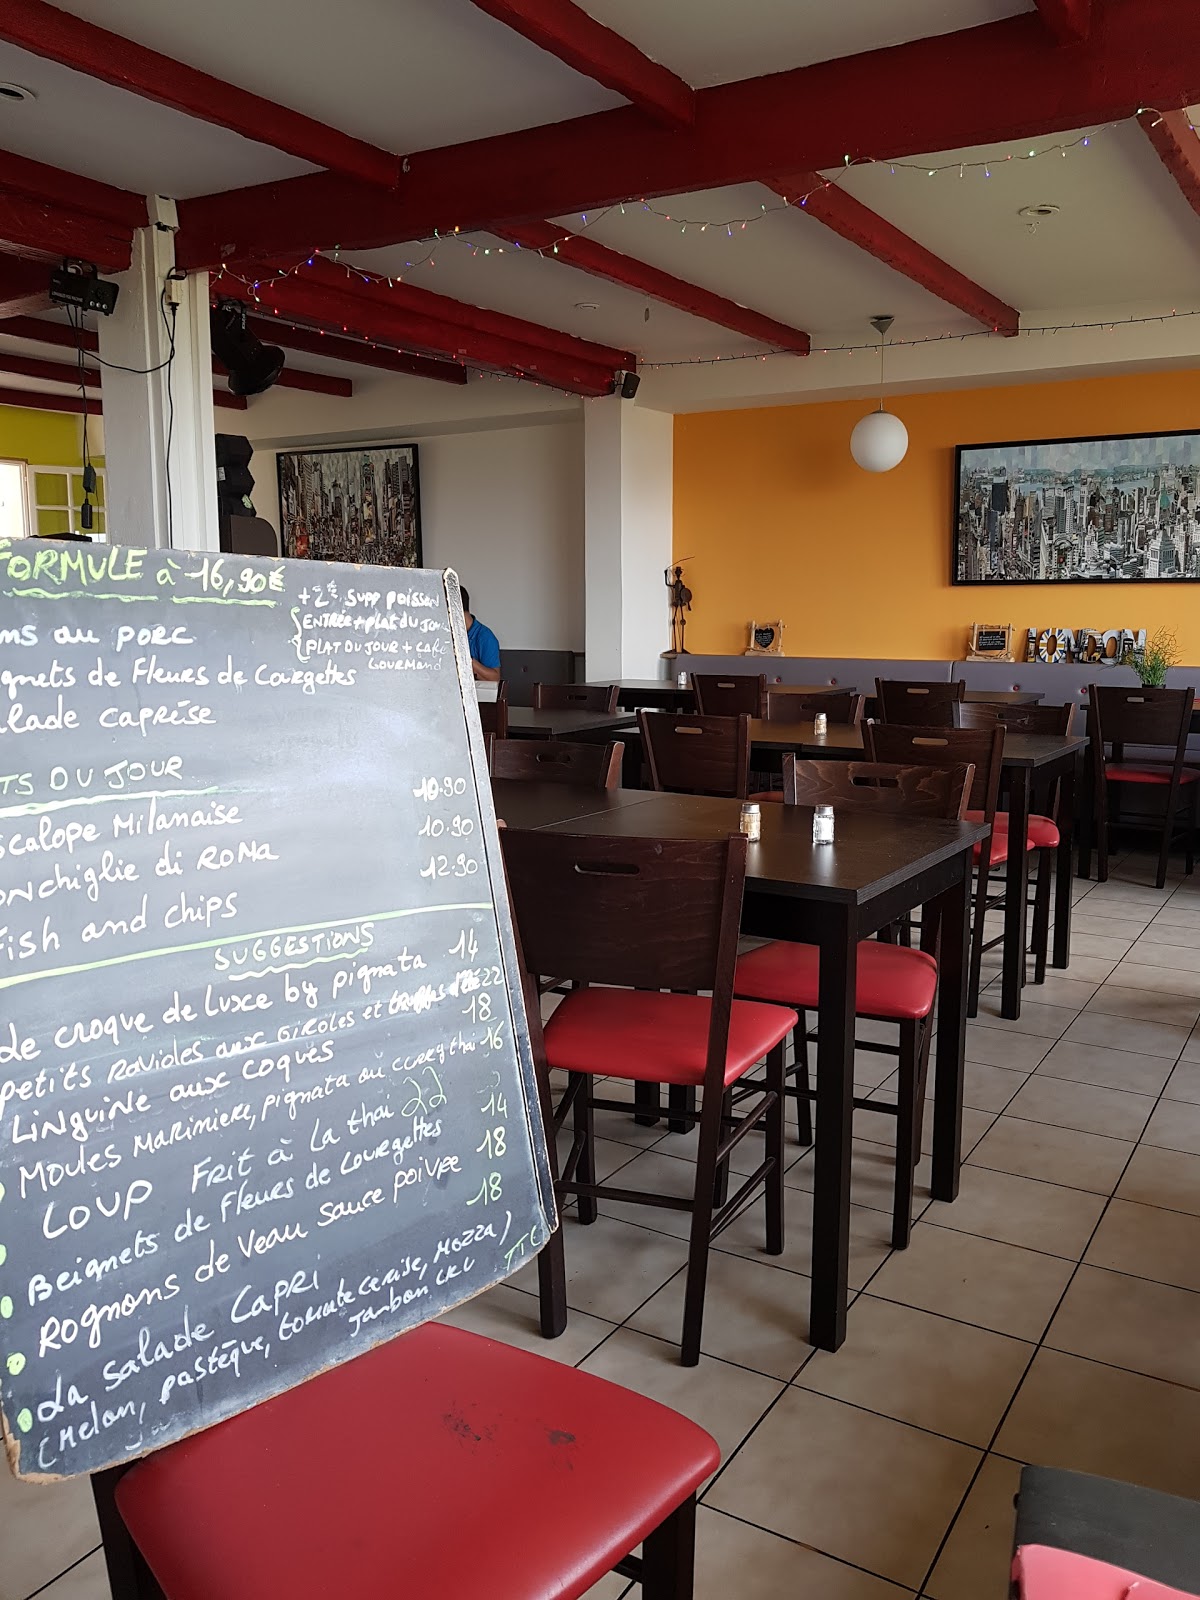 FORMULE à 16,90€
+2€ supp poisson
ENTRÉE + PLAT DU JOU
PLAT DU JOUR + CAFÉ
GOURMAND
ms au porc
gnets de Fleurs de Courgettes
alade caprése
TS DU JOUR
scalope Milanaise 10.90
onchiglie di ROMA 10.90
Fish and chips 12.90
SUGGESTIONS
Le croque de Luxe by pignata 14
petits Ravioles aux Giroles et 22
Linguine aux coques 18
Moules Marimiere, pignata ou curry thai 16
LOUP Frit à La thai 22
Beignets de Fleurs de Courgettes 14
Rognons de Veau sauce poivre 18
La Salade Capri 18
(Melon, pastèque, tomate cerise, Mozza)
Jambon cru TTC
LONDON